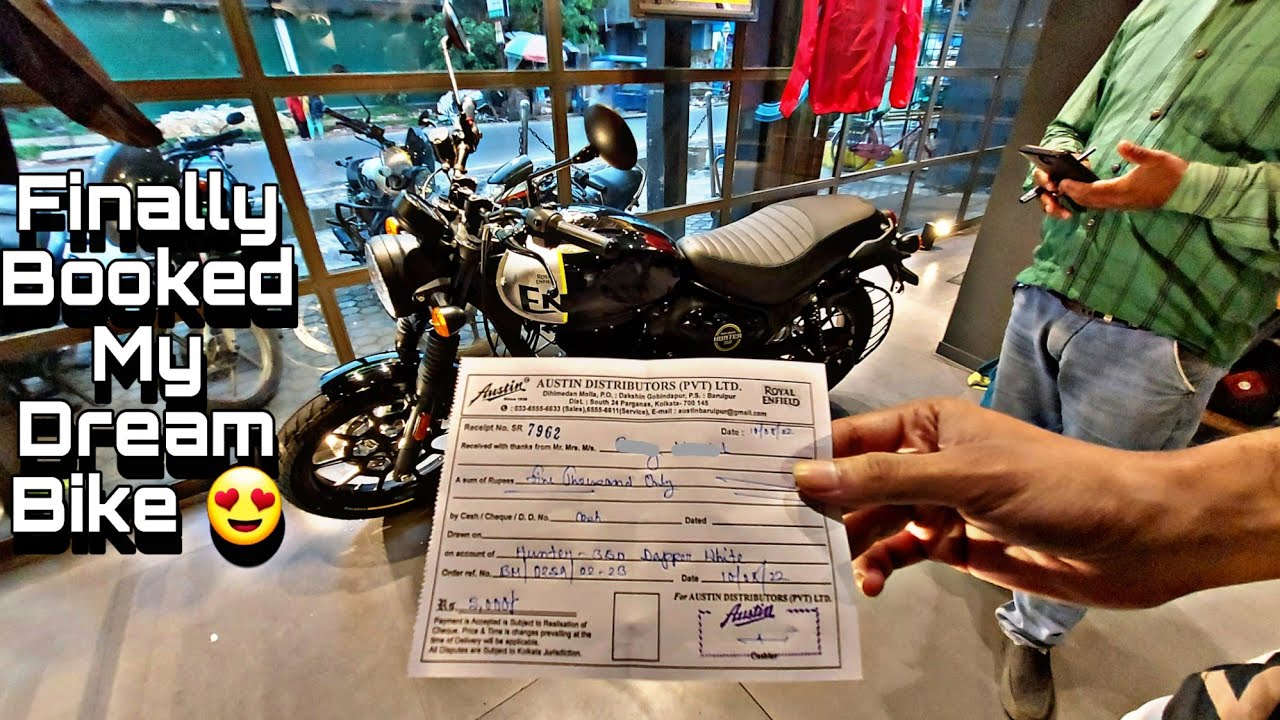 Finally
Booked
My
Dream
Bike 😍
ROYAL
ENFIELD
HUNTER
350
Austin®
Since 1938
AUSTIN DISTRIBUTORS (PVT) LTD.
Dihimedan Molla, P.O. : Dakshin Gobindapur, P.S. : Baruipur
Dist. : South 24 Parganas, Kolkata- 700 145
: 033-6555-6633 (Sales),6555-6611(Service), E-mail : austinbaruipur@gmail.com
ROYAL
ENFIELD
Receipt No. SR 7962 Date : 10/08/22
Received with thanks from Mr. Mrs. M/s.
A sum of Rupees Five Thousand Only
by Cash / Cheque / D. D. No. Cash Dated
Drawn on
on account of Hunter - 350 Dapper White
Order ref. No. BM/02SA/02-23 Date 10/08/22
For AUSTIN DISTRIBUTORS (PVT) LTD.
Rs. 5,000/-
Austin
Cashier
Payment is Accepted is Subject to Realisation of
Cheque. Price & Time is changes prevailing at the
time of Delivery will be applicable.
All Disputes are Subject to Kolkata Jurisdiction.